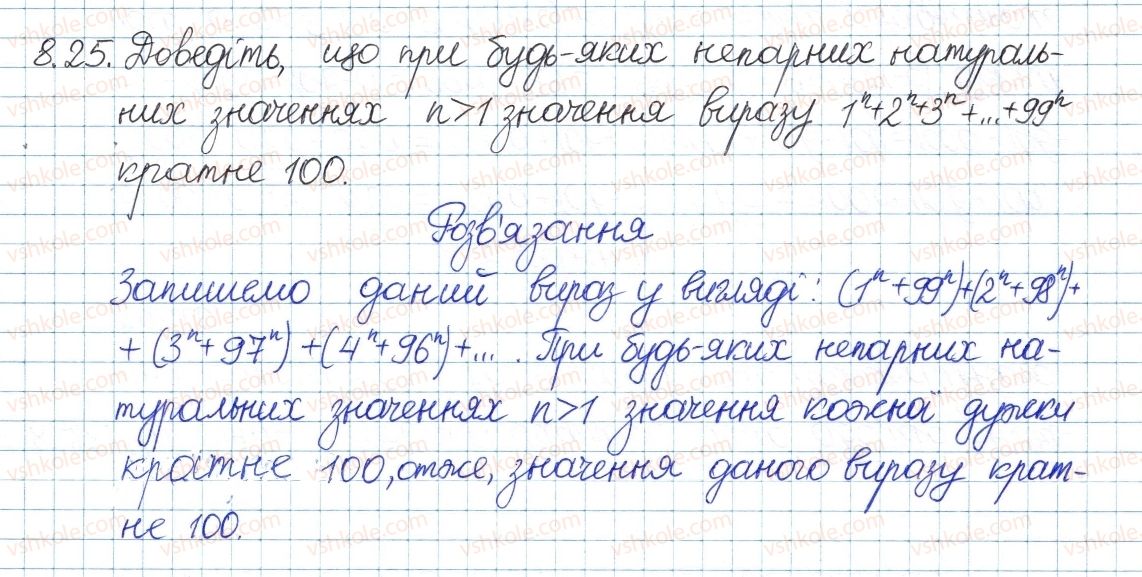 8.25. Доведіть, що при будь-яких непарних натураль-
них значеннях n>1 значення виразу 1ⁿ+2ⁿ+3ⁿ+...+99ⁿ
кратне 100.
Розв'язання
Запишемо даний вираз у вигляді: (1ⁿ+99ⁿ)+(2ⁿ+98ⁿ)+
+(3ⁿ+97ⁿ)+(4ⁿ+96ⁿ)+... . При будь-яких непарних на-
туральних значеннях n>1 значення кожної дужки
кратне 100, отже, значення даного виразу крат-
не 100.